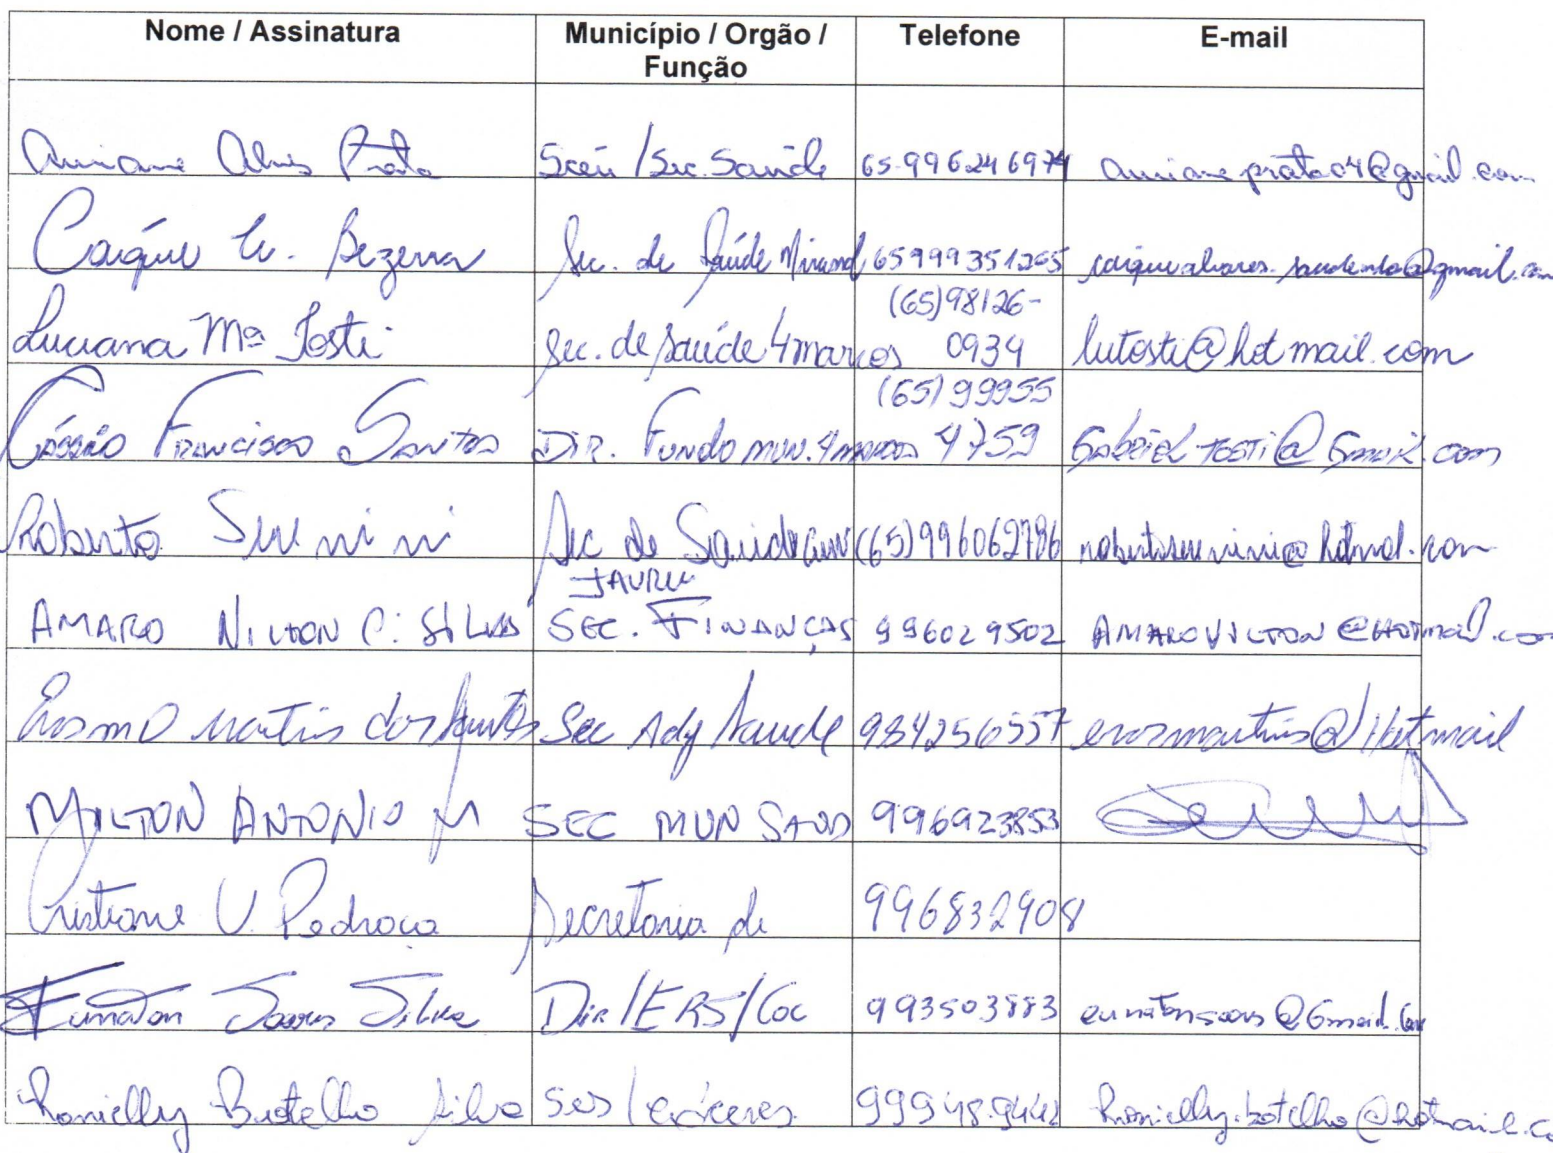 Nome / Assinatura Município / Orgão / Função Telefone E-mail
Alves Prata /Sec. Saúde 65.996246974
Caíque W. Bezerra Sec. de Saúde Mirassol 65999351265
Luciana Mª Tosti Sec. de Saúde 4 marcos (65)98126-0934 lutosti@hotmail.com
Cássio Francisco Santos Dir. Fundo mun. 4 marcos (65)99955 4759 Gabriel-tosti@Gmail.com
Roberto Servini Sec de Saúde (65)996062786 robertoservini@hotmail.com
JAURU
AMARO NILTON C. SILVA SEC. FINANÇAS 996029502 AMARONILTON@HOTmail.com
Erosmo Martins dos Santos Sec Adj Saude 984256557 erosmartins@Hotmail
MILTON ANTONIO M SEC MUN 996923853
Cristiane V. Pedroça Secretaria de 996832908
Soares Silva Dir/ERS/Cac 993503883
Ronielly Botelho Silva SES/Cáceres. 99948.9442 Ronielly.botelho@hotmail.co